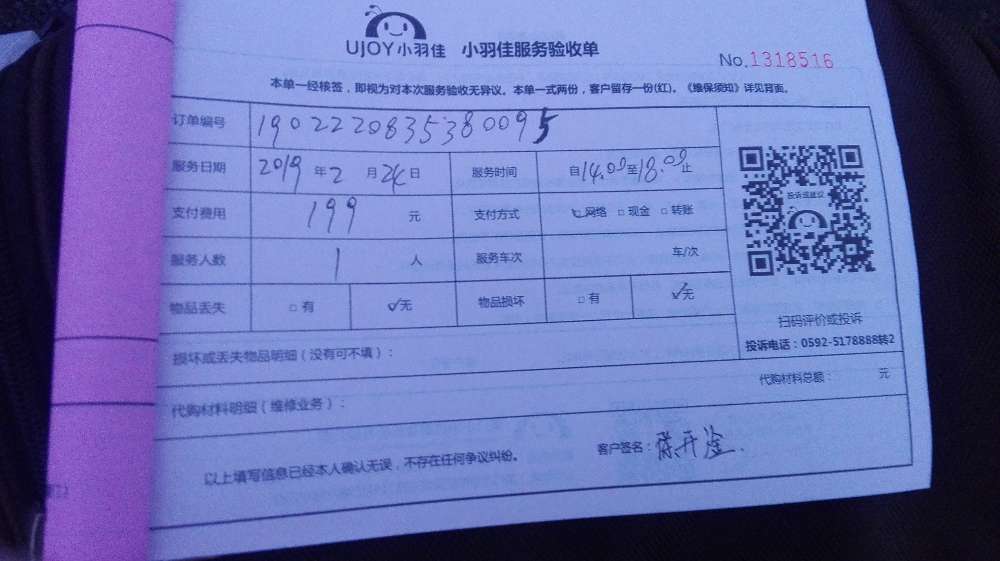 UJOY小羽佳 小羽佳服务验收单
No.1318516
本单一经核签，即视为对本次服务验收无异议。本单一式两份，客户留存一份(红)。《维保须知》详见背面。
订单编号 190222083538 0095
服务日期 2019 年 2 月 24 日 服务时间 自14.00至18.00止
支付费用 199 元 支付方式 ☑网络 □现金 □转账
服务人数 1 人 服务车次 车/次
物品丢失 □有 ☑无 物品损坏 □有 ☑无
投诉或建议
扫码评价或投诉
投诉电话：0592-5178888转2
损坏或丢失物品明细（没有可不填）：
代购材料明细（维修业务）： 代购材料总额： 元
以上填写信息已经本人确认无误，不存在任何争议纠纷。 客户签名：